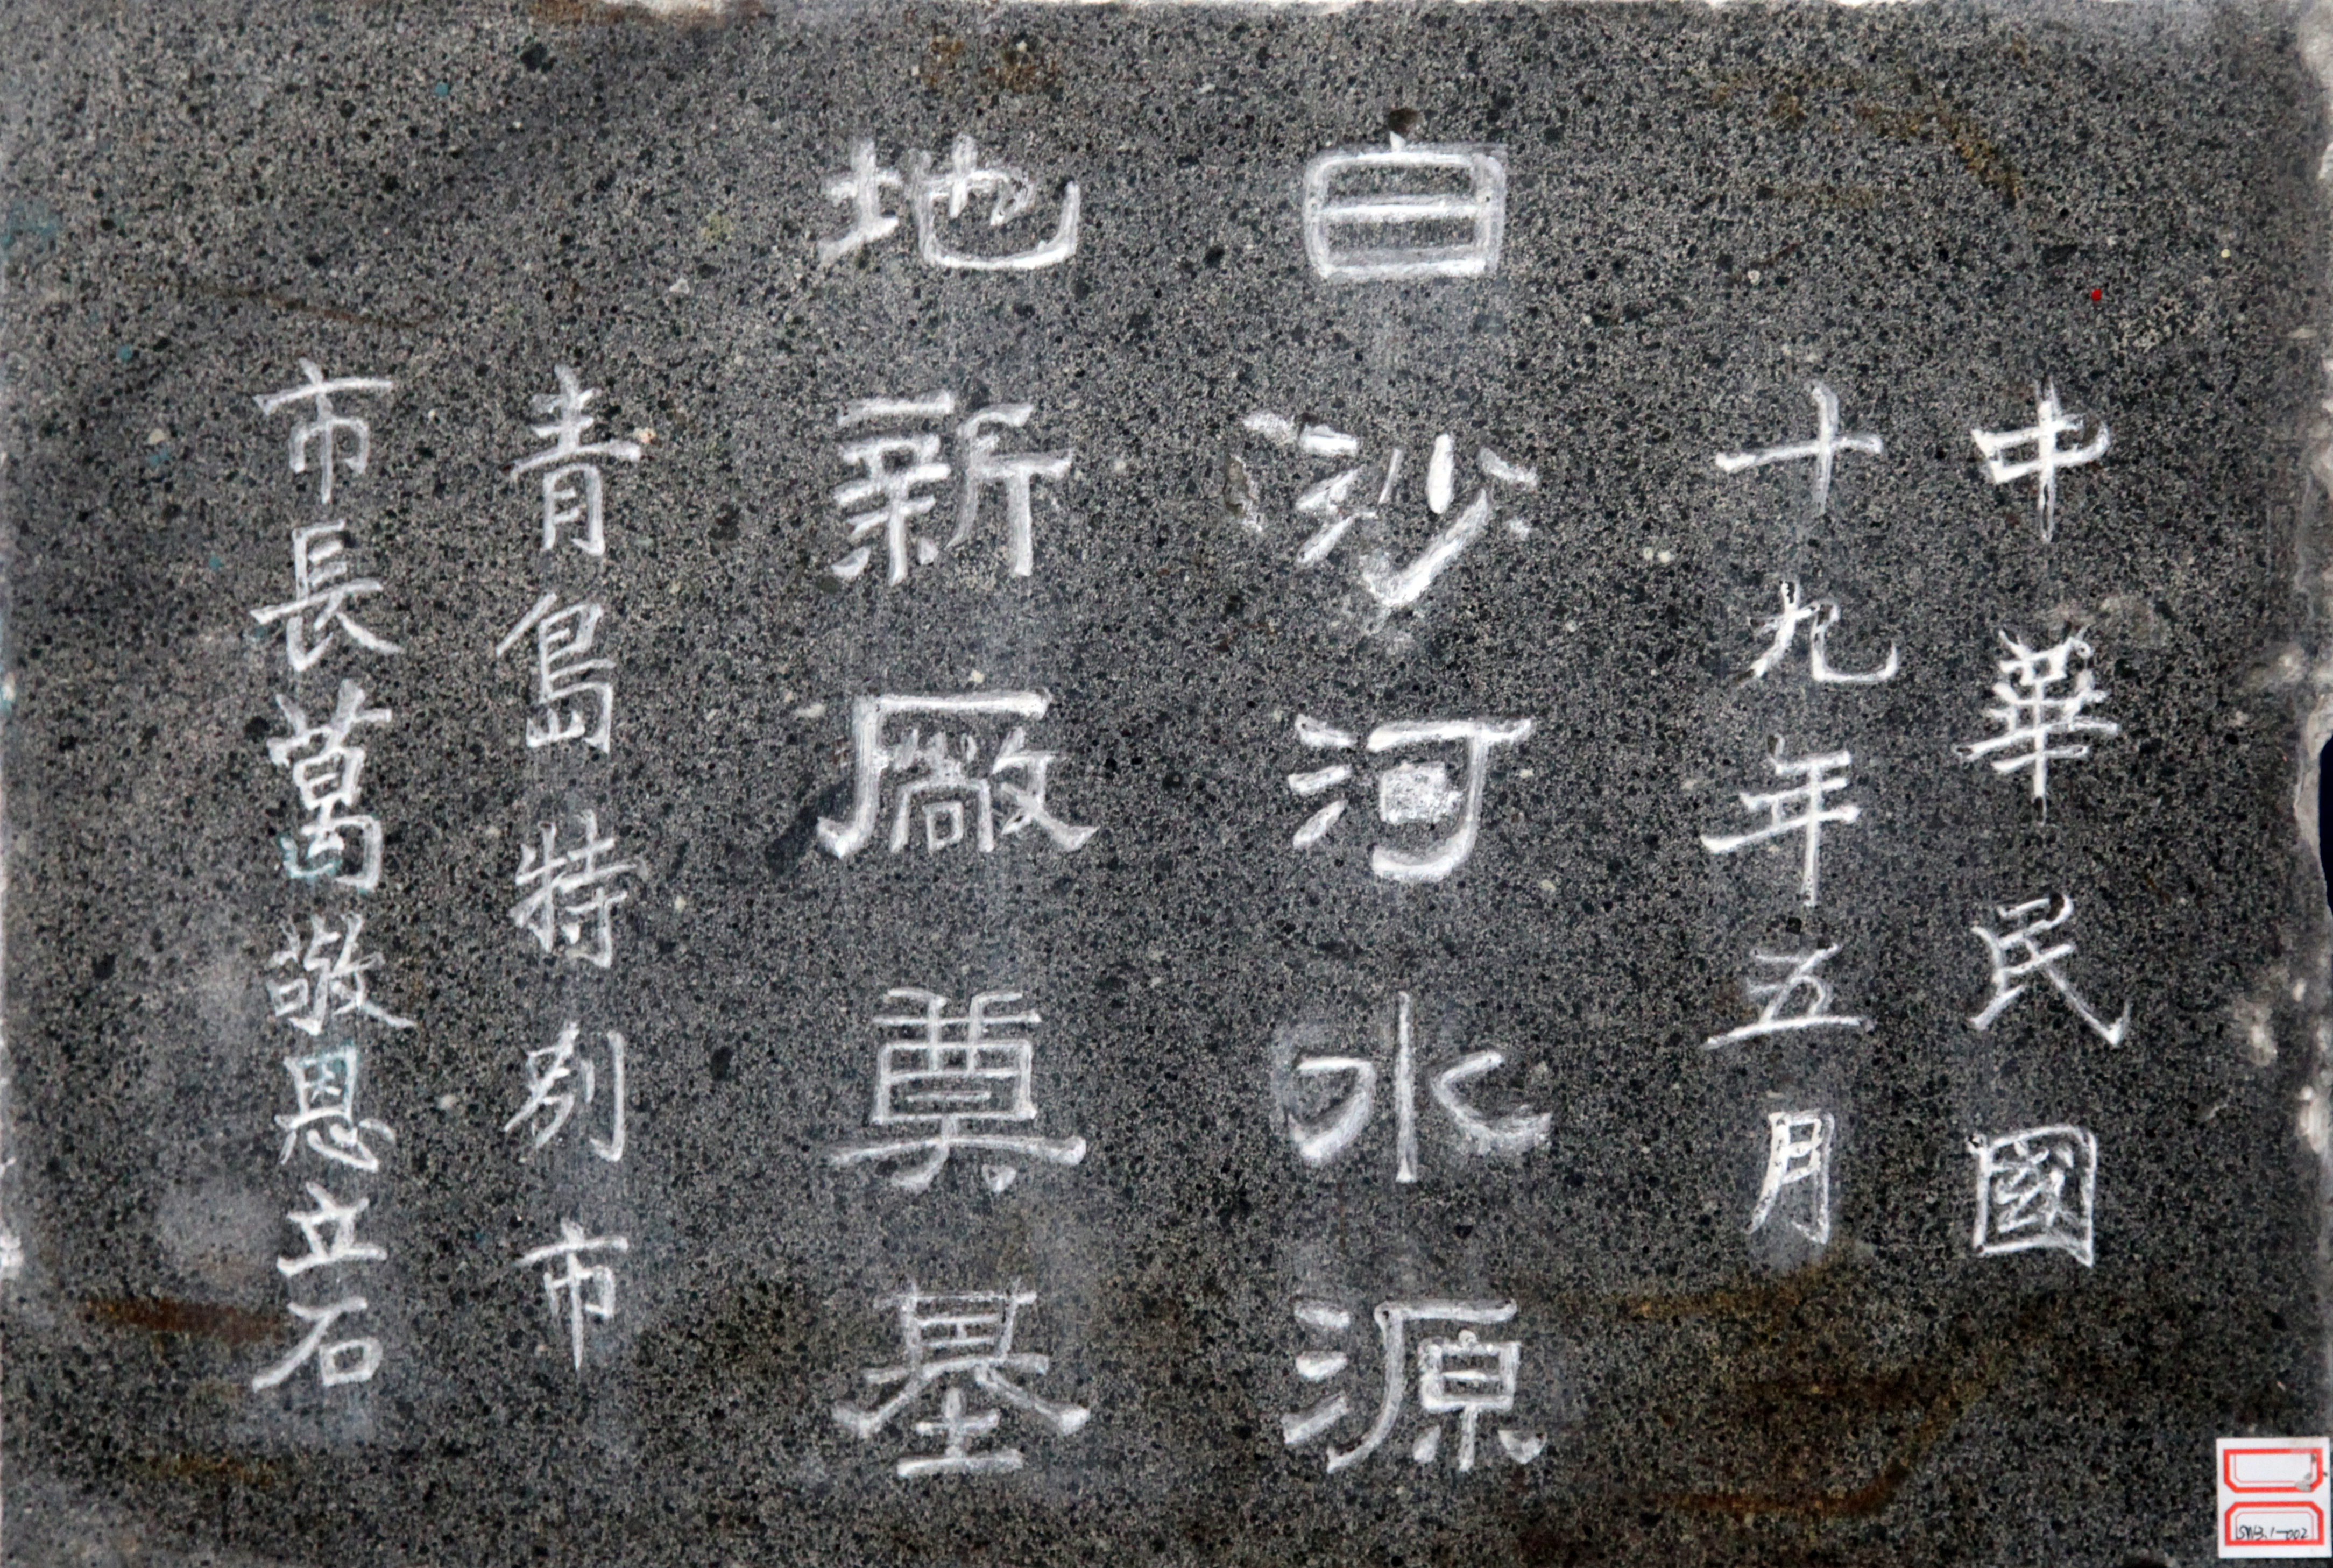 中華民國
十九年五月
白沙河水源
地新厰奠基
青島特別市
市長葛敬恩立石